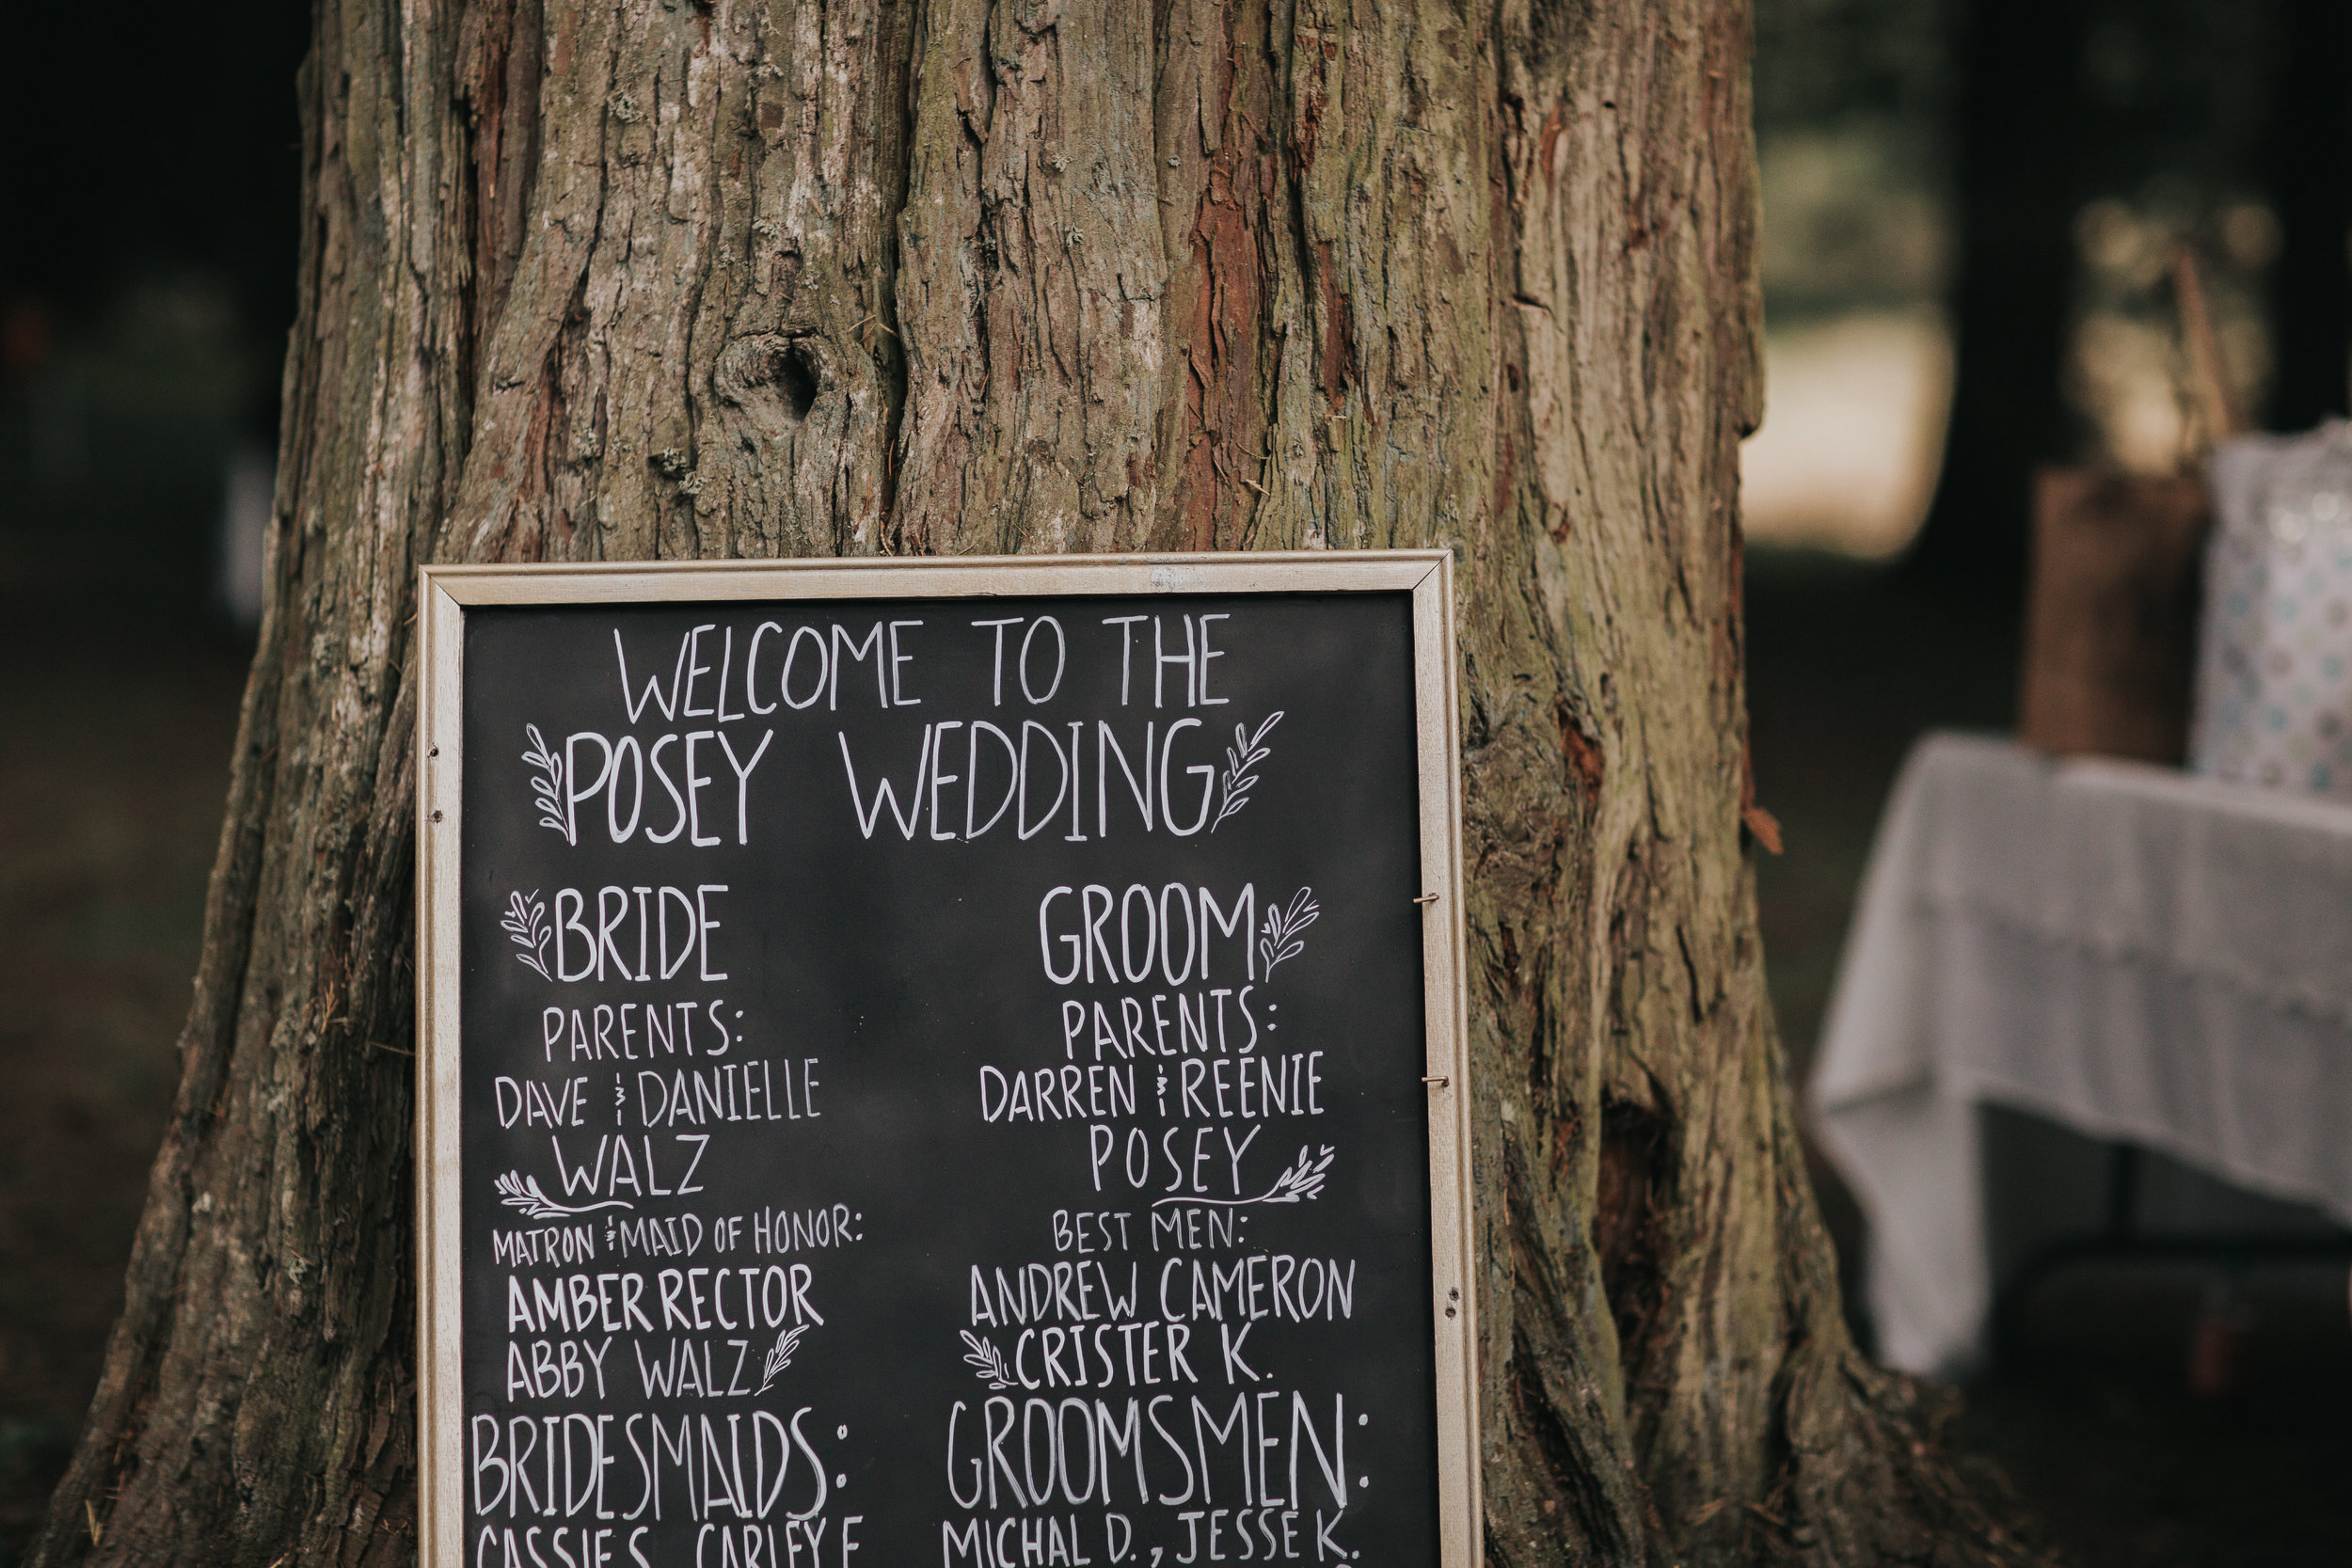 WELCOME TO THE
POSEY WEDDING
BRIDE
PARENTS:
DAVE & DANIELLE
WALZ
MATRON & MAID OF HONOR:
AMBER RECTOR
ABBY WALZ
BRIDESMAIDS:
CASSIE S. CARLEY F.
GROOM
PARENTS:
DARREN & REENIE
POSEY
BEST MEN:
ANDREW CAMERON
CRISTER K.
GROOMSMEN:
MICHAL D., JESSE K.